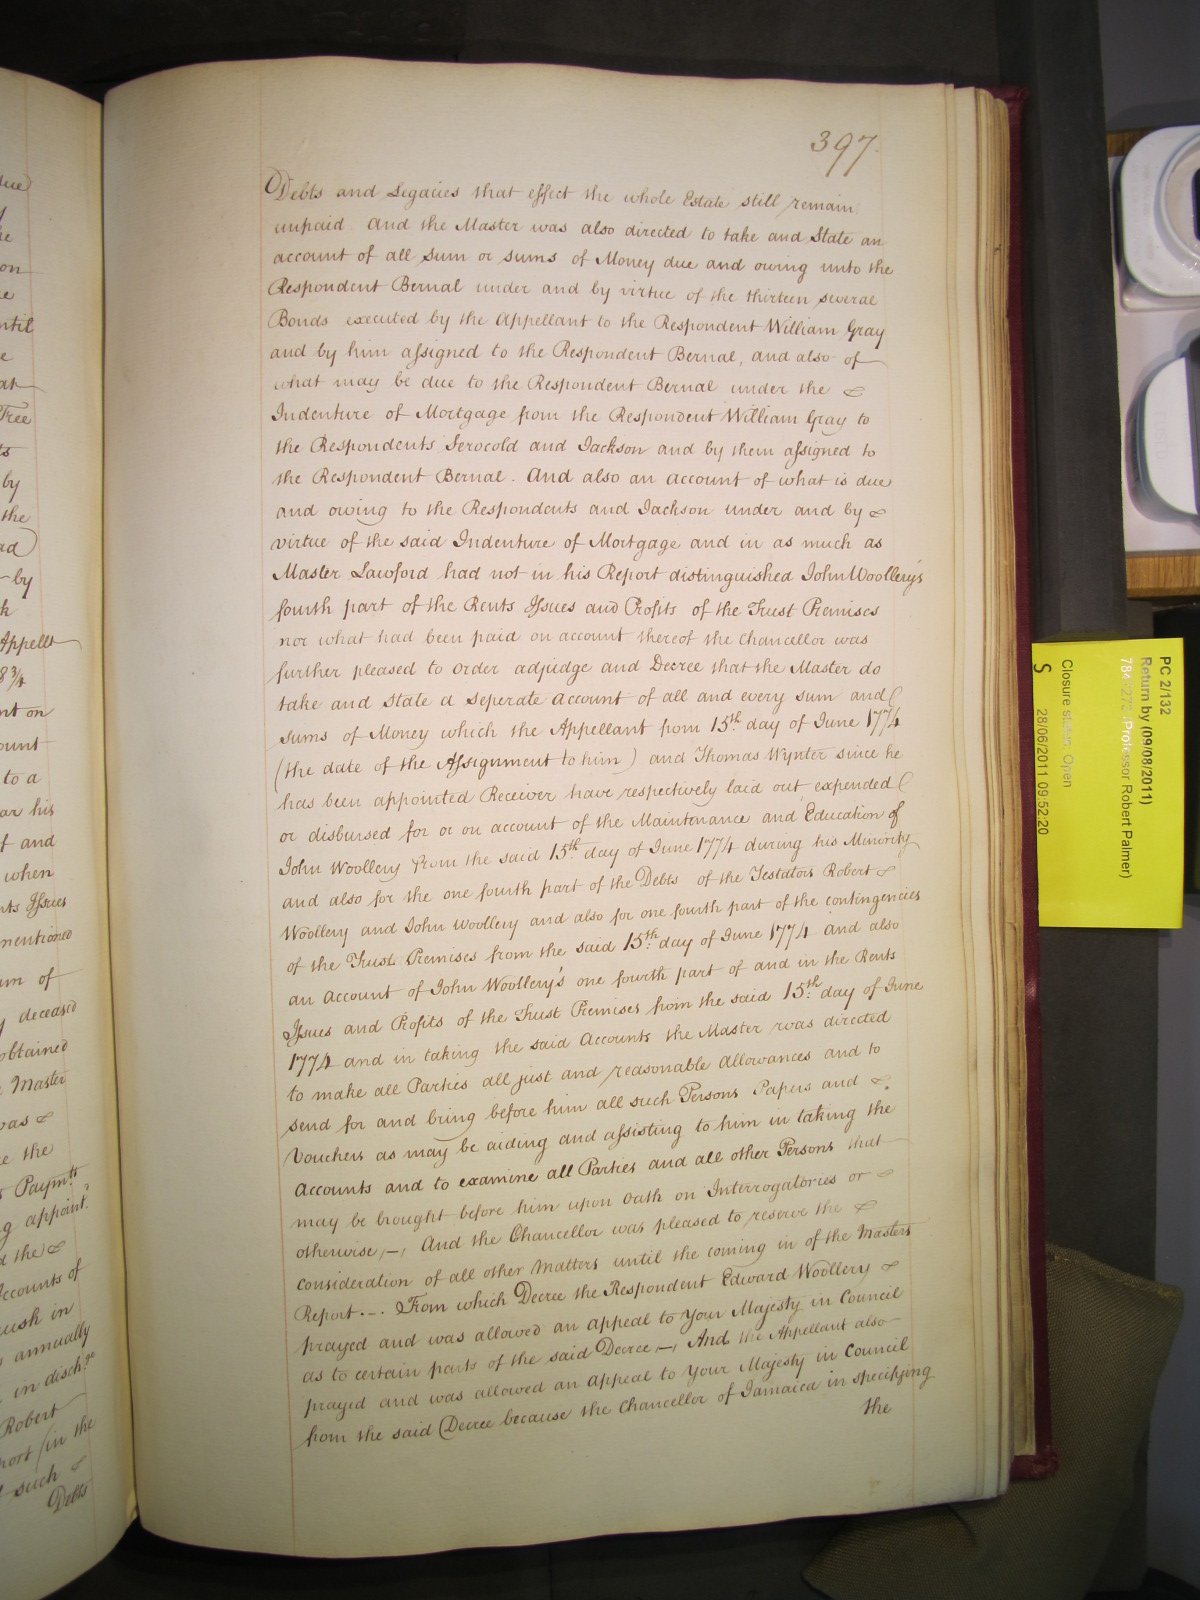 397.
Debts and Legacies that effect the whole Estate still remain
unpaid And the Master was also directed to take and State an
account of all Sum or sums of Money due and owing unto the
Respondent Bernal under and by virtue of the thirteen several
Bonds executed by the Appellant to the Respondent William Gray
and by him assigned to the Respondent Bernal, and also of
what may be due to the Respondent Bernal under the
Indenture of Mortgage from the Respondent William Gray to
the Respondents Serocold and Jackson and by them assigned to
the Respondent Bernal. And also an account of what is due
and owing to the Respondents and Jackson under and by
virtue of the said Indenture of Mortgage and in as much as
Master Lawford had not in his Report distinguished John Woollery's
fourth part of the Rents Issues and Profits of the Trust Premises
nor what had been paid on account thereof the Chancellor was
further pleased to order adjudge and Decree that the Master do
take and State a seperate Account of all and every sum and
sums of Money which the Appellant from 15th day of June 1774
(the date of the Assignment to him) and Thomas Wynter since he
has been appointed Receiver have respectively laid out expended
or disbursed for or on account of the Maintenance and Education of
John Woollery from the said 15th day of June 1774 during his Minority
and also for the one fourth part of the Debts of the Testators Robert
Woollery and John Woollery and also for one fourth part of the contingencies
of the Trust Premises from the said 15th day of June 1774 and also
an Account of John Woollery's one fourth part of and in the Rents
Issues and Profits of the Trust Premises from the said 15th day of June
1774 and in taking the said Accounts the Master was directed
to make all Parties all just and reasonable Allowances and to
send for and bring before him all such Persons Papers and
Vouchers as may be aiding and assisting to him in taking the
Accounts and to examine all Parties and all other Persons that
may be brought before him upon Oath on Interrogatories or
otherwise,—, And the Chancellor was pleased to reserve the
consideration of all other Matters until the coming in of the Masters
Report.—. From which Decree the Respondent Edward Woollery
prayed and was allowed an appeal to Your Majesty in Council
as to certain parts of the said Decree,—, And the Appellant also
prayed and was allowed an Appeal to Your Majesty in Council
from the said Decree because the Chancellor of Jamaica in specifying
the
due
on
until
at
Tree
by
the
by
Appellt
8¾
nt on
ount
to a
ar his
f and
when
nts Issues
mentioned
um of
y deceased
obtained
Master
was
the
Paymts
g appoint.
d the
Accounts of
ush in
annually
in dischge
Robert
port (in the
such
Debts
PC 2/132
Return by (09/08/2011)
Professor Robert Palmer)
Closure status: Open
S
28/06/2011 09:52:20